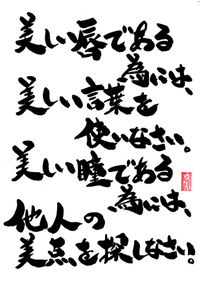 美しい唇である
為には、
美しい言葉を
使いなさい。
美しい瞳である
為には、
他人の
美点を探しなさい。